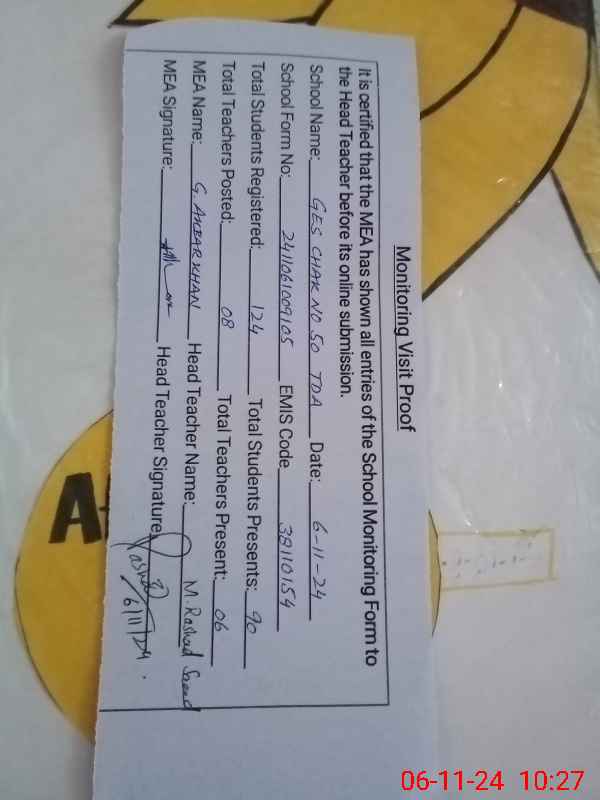 Monitoring Visit Proof
It is certified that the MEA has shown all entries of the School Monitoring Form to
the Head Teacher before its online submission.
School Name: GES CHAK NO 50 TDA Date: 6-11-24
School Form No: 2411061009105 EMIS Code 38110154
Total Students Registered: 124 Total Students Presents: 90
Total Teachers Posted: 08 Total Teachers Present: 06
MEA Name: G. AKBAR KHAN Head Teacher Name: M. Rashad Saeed
MEA Signature: Head Teacher Signature:
6/11/24.
A
06-11-24 10:27